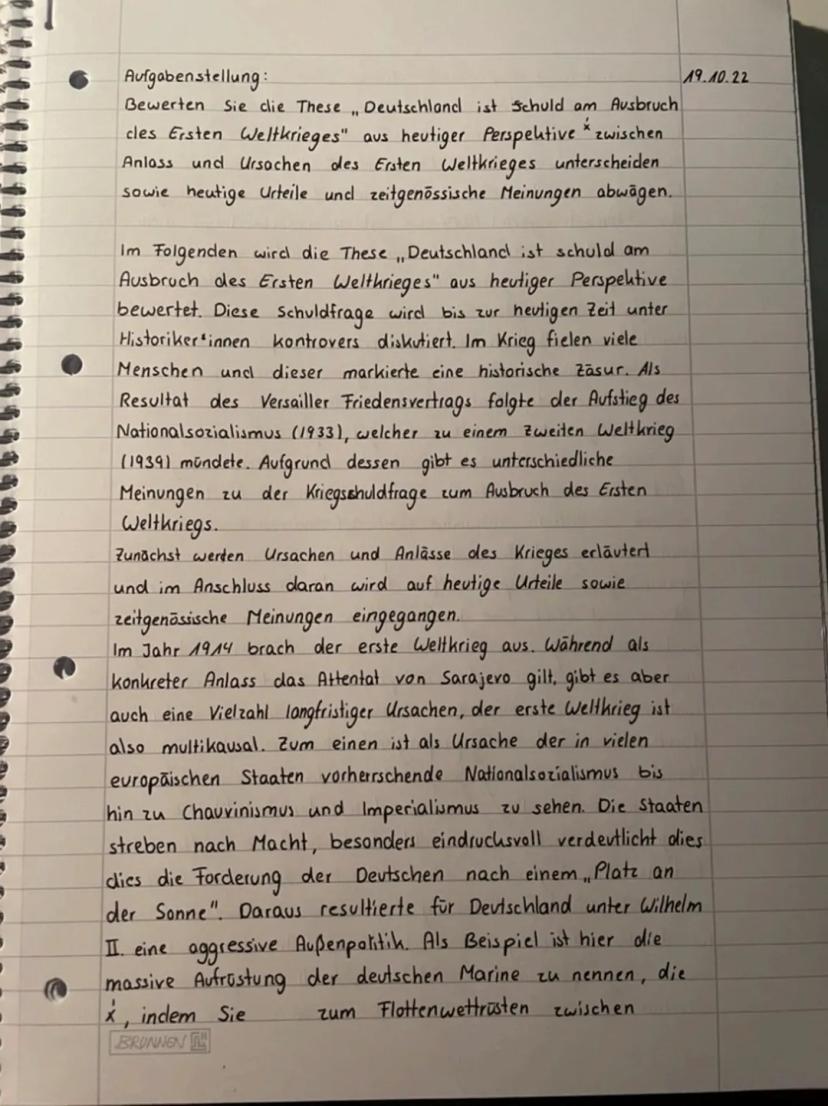 Aufgabenstellung: 19.10.22
Bewerten Sie die These „Deutschland ist Schuld am Ausbruch
des Ersten Weltkrieges" aus heutiger Perspektive x́ zwischen
Anlass und Ursachen des Ersten Weltkrieges unterscheiden
sowie heutige Urteile und zeitgenössische Meinungen abwägen.
Im Folgenden wird die These „Deutschland ist schuld am
Ausbruch des Ersten Weltkrieges" aus heutiger Perspektive
bewertet. Diese Schuldfrage wird bis zur heutigen Zeit unter
Historiker*innen kontrovers diskutiert. Im Krieg fielen viele
Menschen und dieser markierte eine historische Zäsur. Als
Resultat des Versailler Friedensvertrags folgte der Aufstieg des
Nationalsozialismus (1933), welcher zu einem Zweiten Weltkrieg
(1939) mündete. Aufgrund dessen gibt es unterschiedliche
Meinungen zu der Kriegsschuldfrage zum Ausbruch des Ersten
Weltkriegs.
Zunächst werden Ursachen und Anlässe des Krieges erläutert
und im Anschluss daran wird auf heutige Urteile sowie
zeitgenössische Meinungen eingegangen.
Im Jahr 1914 brach der erste Weltkrieg aus. Während als
konkreter Anlass das Attentat von Sarajevo gilt, gibt es aber
auch eine Vielzahl langfristiger Ursachen, der erste Weltkrieg ist
also multikausal. Zum einen ist als Ursache der in vielen
europäischen Staaten vorherrschende Nationalsozialismus bis
hin zu Chauvinismus und Imperialismus zu sehen. Die Staaten
streben nach Macht, besonders eindrucksvoll verdeutlicht dies
dies die Forderung der Deutschen nach einem „Platz an
der Sonne". Daraus resultierte für Deutschland unter Wilhelm
II. eine aggressive Außenpolitik. Als Beispiel ist hier die
massive Aufrüstung der deutschen Marine zu nennen, die
x́, indem Sie zum Flottenwettrüsten zwischen
BRUNNEN